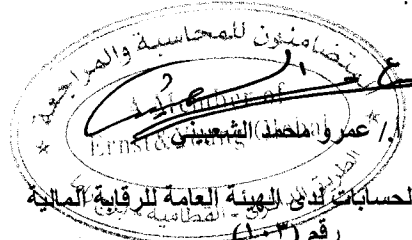 متضامنون للمحاسبة والمراجعة
A Member of
Ernst &
/. عمرو محمد الشعبيني
لحسابات لدى الهيئة العامة للرقابة المالية
رقم (١٠٣)